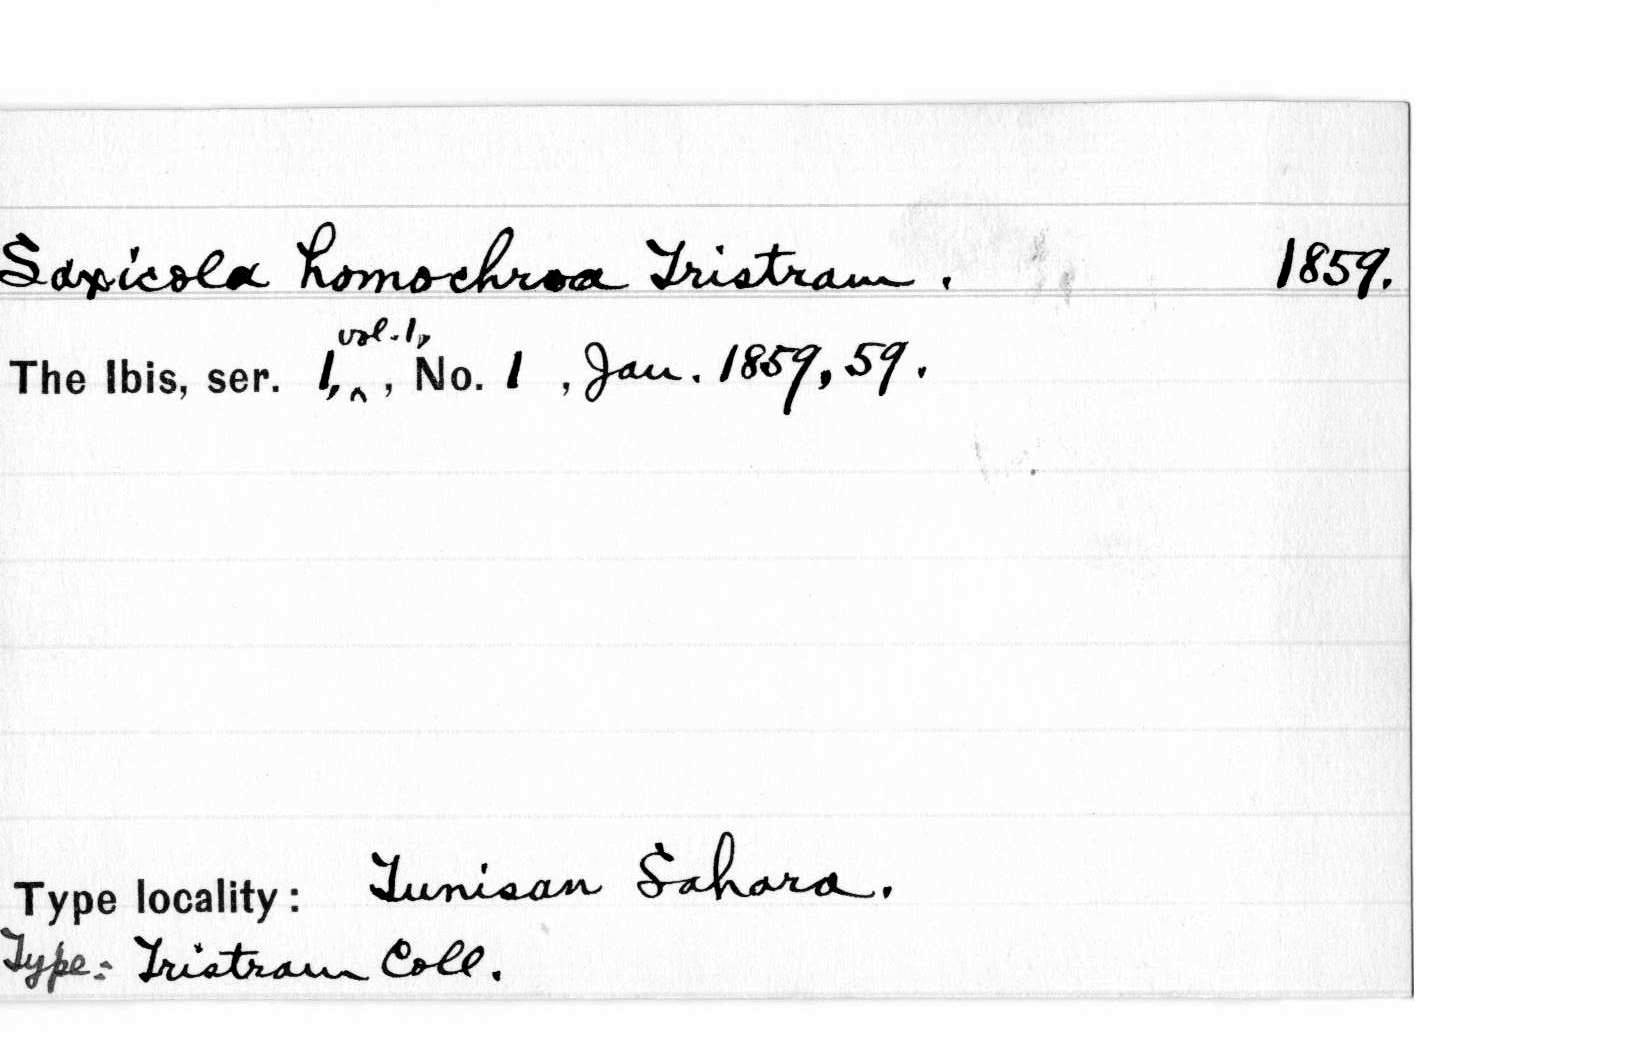 Saxicola homochroa Tristram. 1859.
The Ibis, ser. 1, vol. 1, , No. 1 , Jan. 1859, 59.
Type locality: Tunisan Sahara.
Type: Tristram Coll.